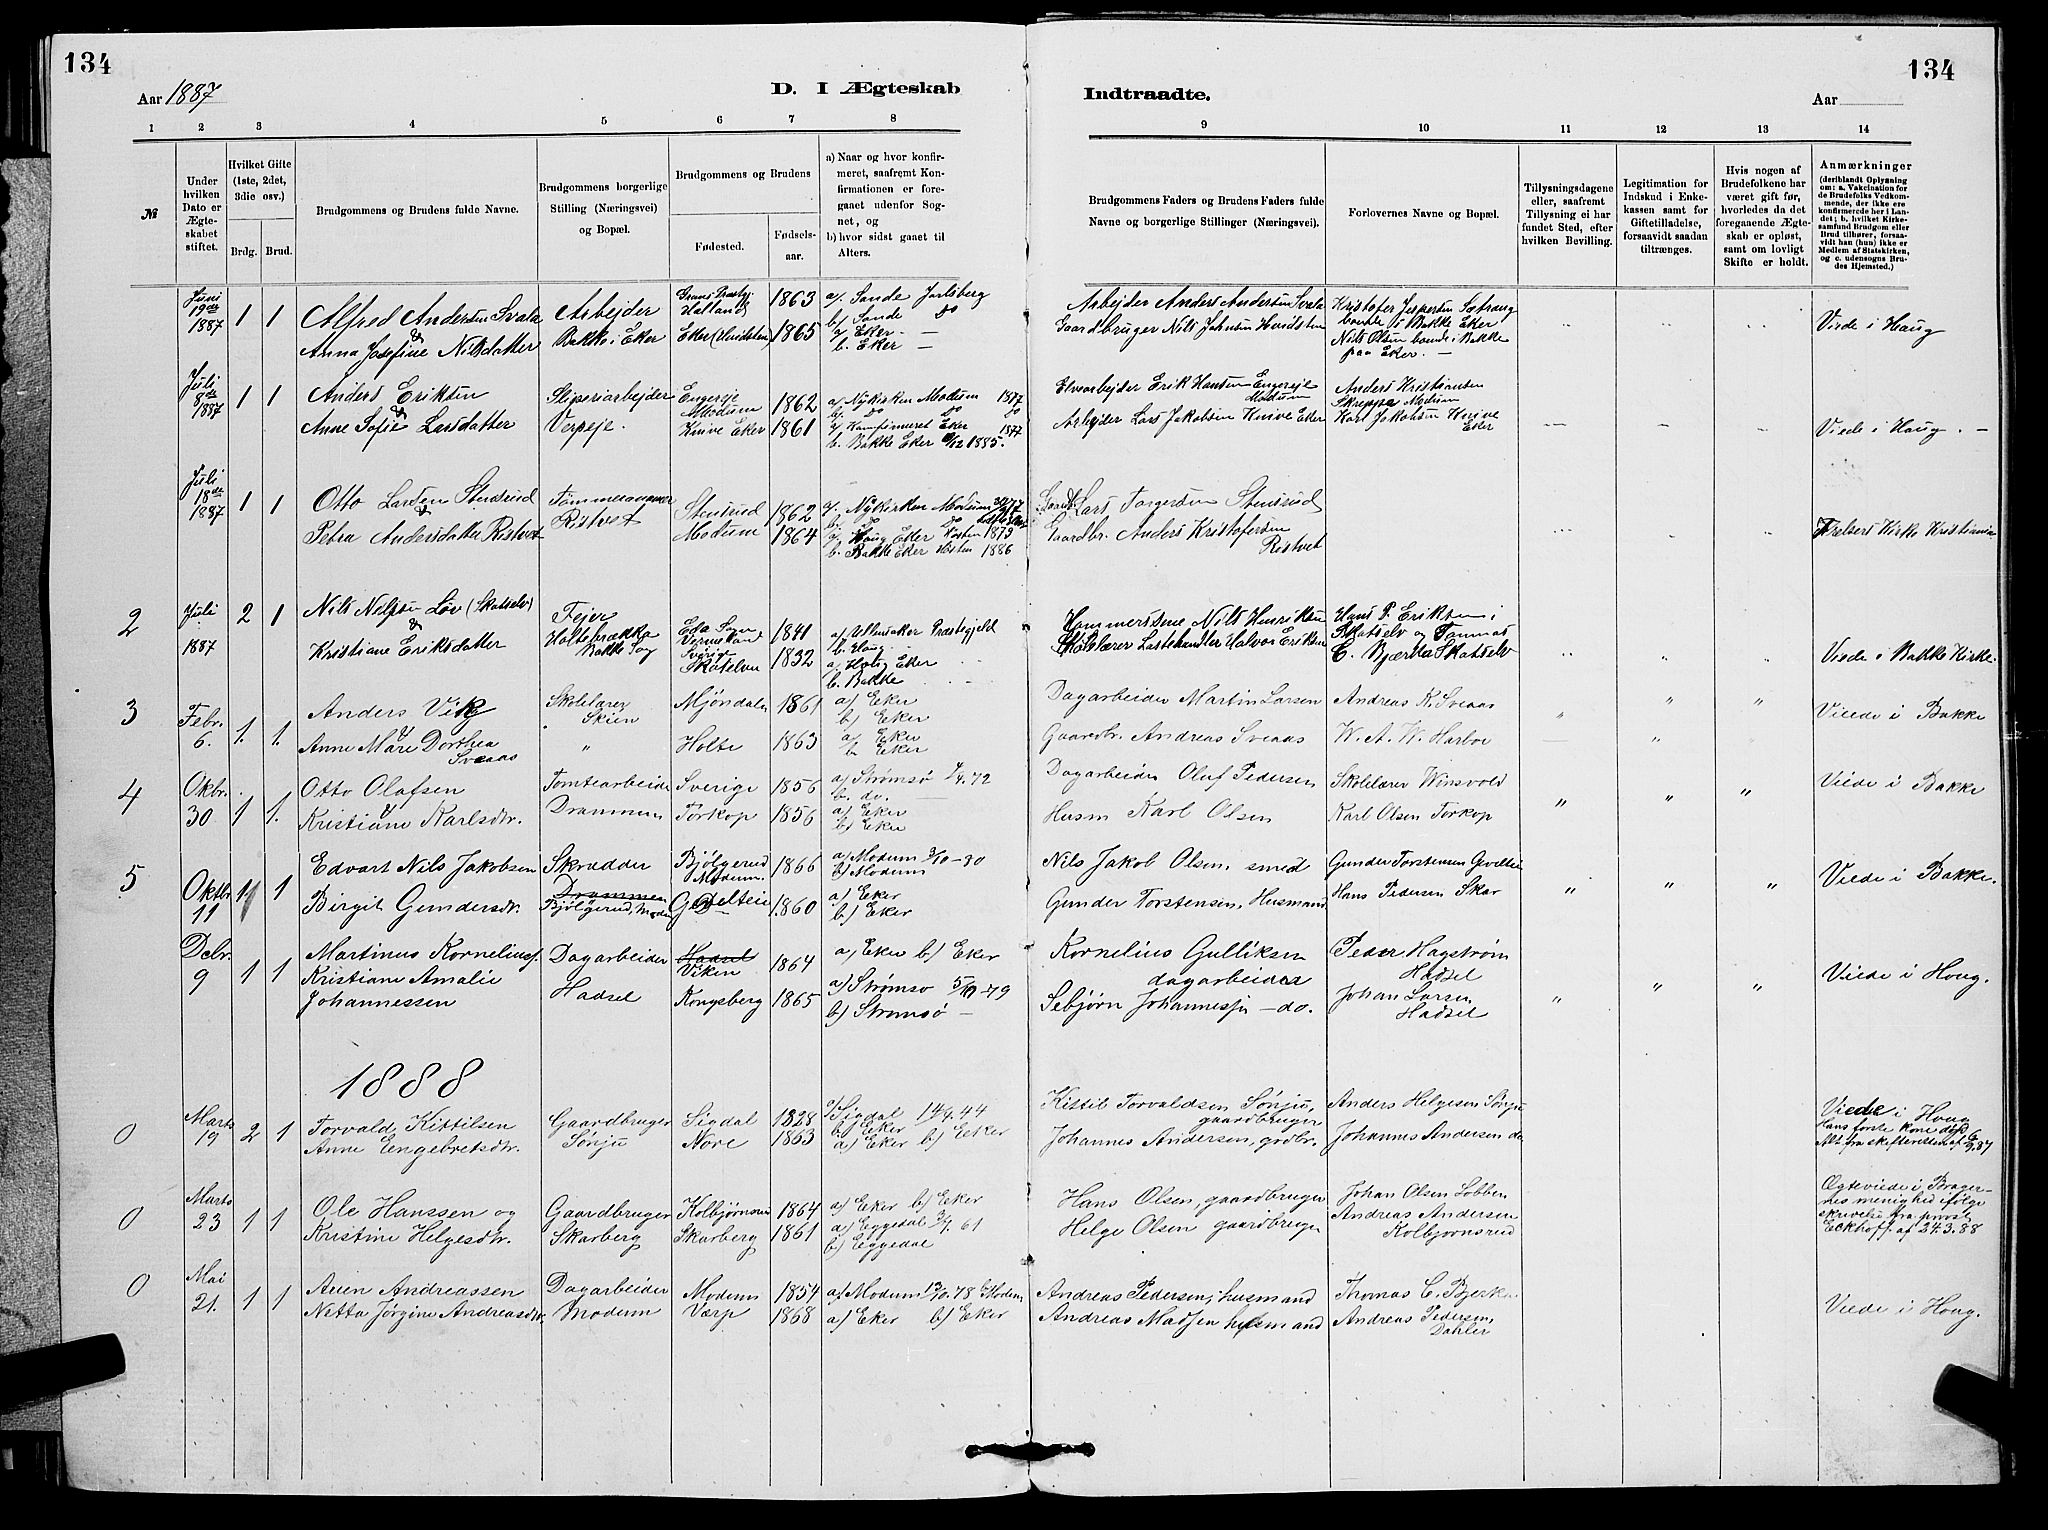 134
134
Aar 1887
D. I Ægteskab
Indtraadte.
Aar
1 2 3 4 5 6 7 8 9 10 11 12 13 14
№
Under hvilken Dato er Ægteskabet stiftet.
Hvilket Gifte (1ste, 2det, 3die osv.)
Brdg. Brud.
Brudgommens og Brudens fulde Navne.
Brudgommens borgerlige Stilling (Næringsvei) og Bopæl.
Brudgommens og Brudens
Fødested.
Fødselsaar.
a) Naar og hvor konfirmeret, saafremt Konfirmationen er foregaaet udenfor Sognet, og
b) hvor sidst gaaet til Alters.
Brudgommens Faders og Brudens Faders fulde Navne og borgerlige Stillinger (Næringsvei).
Forlovernes Navne og Bopæl.
Tillysningsdagene eller, saafremt Tillysning ei har fundet Sted, efter hvilken Bevilling.
Legitimation for Indskud i Enkekassen samt for Giftetilladelse, forsaavidt saadan tiltrænges.
Hvis nogen af Brudefolkene har været gift før, hvorledes da det foregaaende Ægteskab er opløst, samt om lovligt Skifte er holdt.
Anmærkninger
(deriblandt Oplysning om: a. Vakcination for de Brudefolks Vedkommende, der ikke ere konfirmerede her i Landet; b. hvilket Kirkesamfund Brudgom eller Brud tilhører, forsaavidt han (hun) ikke er Medlem af Statskirken, og c. udensogns Brudes Hjemsted.)
Juni 19de 1887 1 1
Alfred Andersen Svala
& Anna Josefine Nilsdatter
Arbejder
Bakke i Eker
Eker
1863
1865
a/. Sande Jarlsberg
b/. Sande do
a/ Eker. —
b. Eker —
Arbejder Anders Andersen Svala
Gaardbruger Nils Johnsen
Kristofer Jespersen
Bakke Eker
Nils Olsen boende i Bakke
paa Eker. —
Viede i Haug
Juli 8de 1887 1 1
Anders Eriksen
& Anne Sofie Larsdatter
Sliperiarbejder
Verpeje.
Engereje
Modum
Knive Eker
1862
1861
a/ Nykirken Modum 1877
b/. do do do
a/ Eker 1877
b. Bakke Eker 1885.
Elvearbejder Erik Hansen Engereje
Modum
Arbejder Lars Jakobsen Knive Eker
Anders Kristiansen
Modum
Karl Jakobsen Knive
Eker
Viede i Haug. —
Juli 18de 1887 1 1
Otto Larsen Stensrud
& Petra Andersdatter Ristvet
Tømmermand
Ristvet
Stensrud
Modum
1862
1864
a/. Nykirken Modum
b/. do do
a/ Haug Eker Høsten 1879
b. Bakke Eker Høsten 1886
Lars Torgersen Stensrud
Gaardbr. Anders Kristofersen
Ristvet
Frelsers Kirke Kristiania
2 Juli 1887 2 1
Nils Nilsen Löv (Skotselv)
& Kristiane Eriksdatter
Fejer
Holtebrække
Bakke Sog
Eda Sogn
Sverige
Skotselven
1841
1832
a/ Ullensaker Præstegjeld
b. Haug
a/ Haug Eker
b. Bakke
Hammersmed Nils Henriksen
Halvor Eriksen
Hans P. Eriksen i
Skotselv og Tommas
C. Bjerke Skotselv
Viede i Bakke Kirke.
3 Febr. 6. 1. 1.
Anders Vik
& Anne Mare Dorthea
Sveaas
Skolelærer
Skien
"
Mjøndalen
Holte
1861
1863
a) Eker
b) Eker
a/ Eker
b. Eker
Dagarbeider Martin Larsen
Gaardbr. Andreas Sveaas
Andreas K. Sveaas
W. A. W. Harboe
Viede i Bakke
4 Okbr. 30 1 1.
Otto Olafsen
& Kristiane Karlsdtr.
Tomtearbeider
Drammen
Sverige
Torkop
1856
1856
a) Strømsø 72
b. do.
a) Eker
b) Eker
Dagarbeider Oluf Pedersen
Husm Karl Olsen
Skolelærer Winsvold
Karl Olsen Torkop
Viede i Bakke
5 Oktbr. 11 1 1
Edvart Nils Jakobsen
Birgit Gundersdtr.
Skrædder
Drammen
Bjølgerud, Modum
Bjølgerud
Modum.
1866
1860
a) Modum 3/10-30
b) Modum
a) Eker
b) Eker
Nils Jakob Olsen, smed
Gunder Torstensen, Husmand
Gunder Torstensen
Hans Pedersen Skar
Viede i Bakke.
Debr. 9 1 1
Martinus Korneliuss.
Kristiane Amalie
Johannessen
Dagarbeider
Hadsel
Hadsel
Viken
Kongsberg
1864
1865
a) Eker b) Eker
a) Strømsø 79
b) Strømsø —
Kornelius Gulliksen
dagarbeider
Sebjørn Johannessen — do.
Peder Hagstrøm
Hadsel
Johan Larsen
Hadsel
Viede i Houg.
1888
0 Marts 19 2 1
Torvald Kittilsen
Anne Engebretsdtr.
Gaardbruger
Sønju
Sigdal
Nore
1828
1863
a/ Sigdal 44
b) Eker
a) Eker b) Eker
Kittil Torvaldsen Sønju,
gaardbruger
Johannes Andersen, grdbr.
Anders Helgesen Sønju
Johannes Andersen do
Viede i Houg
Hans første kone død
Alt fra skifteretten af 87
0 Marts 23 1 1
Ole Hanssen og
Kristine Helgesdtr.
Gaardbruger
Skarberg
Kolbjørnsrud
Skarberg
1864
1861
a) Eker b) Eker
a) Eggedal 61
b) Eggedal
Hans Olsen, gaardbruger
Helge Olsen gaardbruger
Johan Olsen Lobben
Andreas Andersen
Kolbjørnsrud
Ægteviede i Bragernes menighed ifølge
skrivelse fra provst
Eckhoff af 24.3.88
0 Mai 21. 1 1
Aren Andreassen
Netta Jørgine Andreasdtr.
Dagarbeider
Modum
Modum
Værp
1854
1868
a/ Modum 78 b/ Modum
a) Eker b) Eker
Andreas Pedersen, husmand
Andreas Madsen husmand
Thomas C. Bjerke
Andreas Pedersen,
Dahler
Viede i Houg.